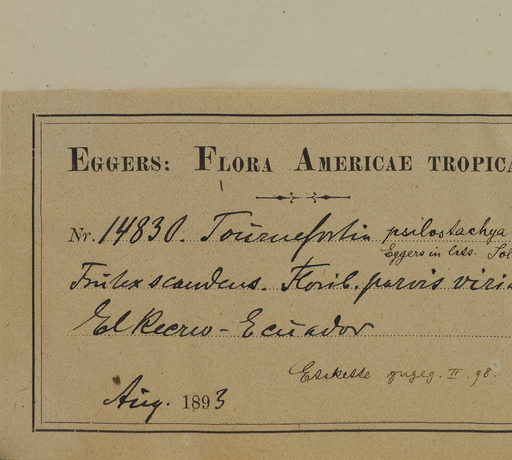 EGGERS: FLORA AMERICAE TROPICA
Nr. 14830. Tournefortia psilostachya
Eggers in litt. Sol
Frutex scandens. Florib. parvis viri
El Recreo - Ecuador
Etikette zugeg. II. 98.
Aug. 1893